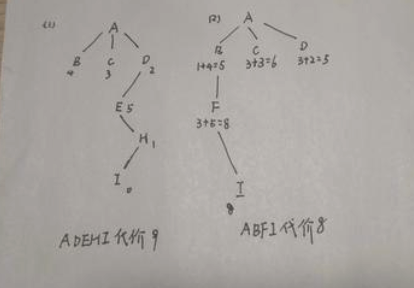 (1)
A
B
C
D
4
3
2
E 5
H 1
I 0
ADEHI 代价 9
(2)
A
B
C
D
1+4=5
3+3=6
3+2=5
F
3+5=8
I
8
ABFI 代价 8